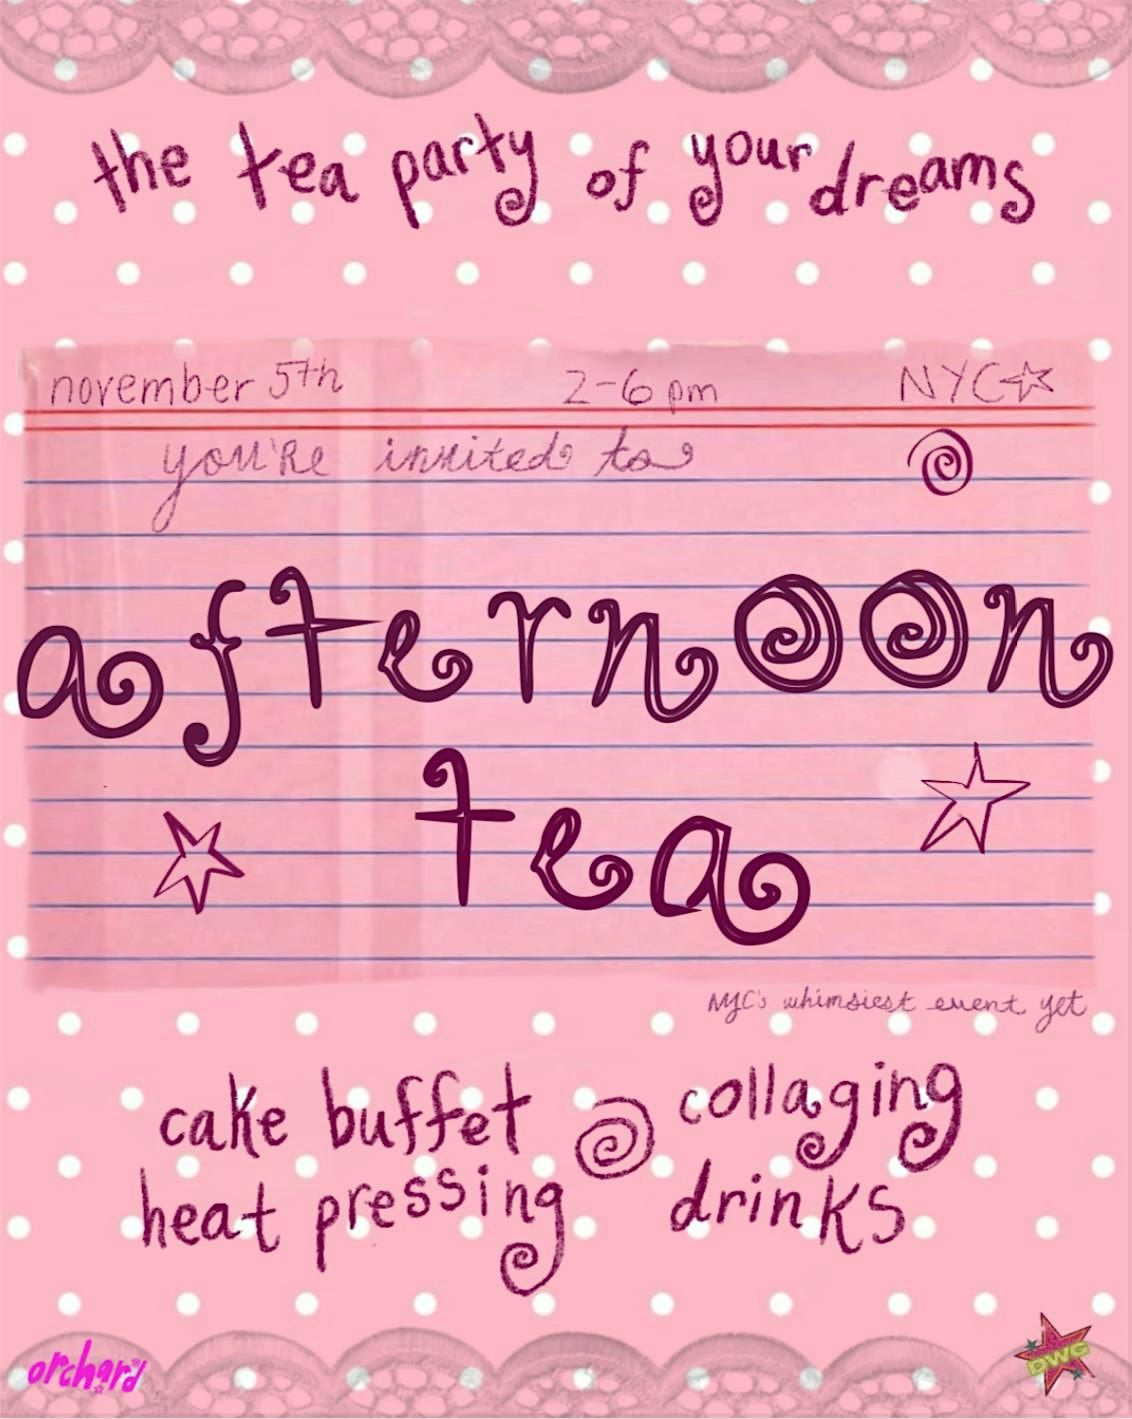 the tea party of your dreams
november 5th 2-6 pm NYC
you're invited to
afternoon
tea
NYC's whimsiest event yet
cake buffet collaging
heat pressing drinks
orchard DWG